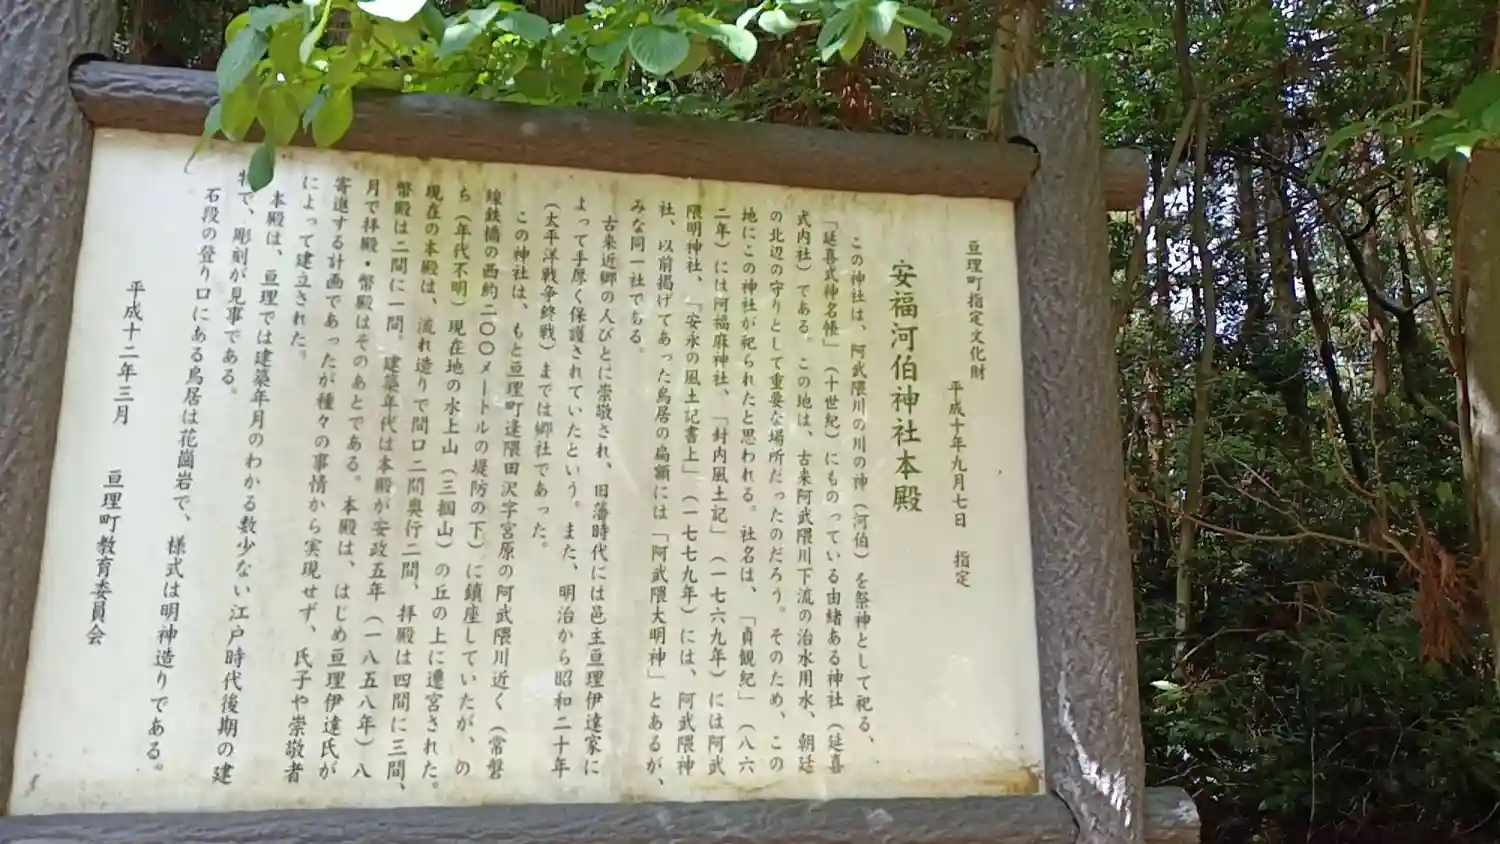 亘理町指定文化財
平成十年九月七日 指定
安福河伯神社本殿
この神社は、阿武隈川の川の神(河伯)を祭神として祀る、
「延喜式神名帳」(十世紀)にものっている由緒ある神社(延喜
式内社)である。この地は、古来阿武隈川下流の治水用水、朝廷
の北辺の守りとして重要な場所だったのだろう。そのため、この
地にこの神社が祀られたと思われる。社名は、「貞観紀」(八六
二年)には阿福麻神社、「封内風土記」(一七六九年)には阿武
隈明神社、「安永の風土記書上」(一七七九年)には、阿武隈神
社、以前掲げてあった鳥居の扁額には「阿武隈大明神」とあるが、
みな同一社である。
古来近郷の人びとに崇敬され、旧藩時代には邑主亘理伊達家に
よって手厚く保護されていたという。また、明治から昭和二十年
(太平洋戦争終戦)までは郷社であった。
この神社は、もと亘理町逢隈田沢字宮原の阿武隈川近く(常磐
線鉄橋の西約二〇〇メートルの堤防の下)に鎮座していたが、の
ち(年代不明)現在地の水上山(三掴山)の丘の上に遷宮された。
現在の本殿は、流れ造りで間口二間奥行二間、拝殿は四間に三間、
幣殿は二間に一間。建築年代は本殿が安政五年(一八五八年)八
月で拝殿・幣殿はそのあとである。本殿は、はじめ亘理伊達氏が
寄進する計画であったが種々の事情から実現せず、氏子や崇敬者
によって建立された。
本殿は、亘理では建築年月のわかる数少ない江戸時代後期の建
物で、彫刻が見事である。
石段の登り口にある鳥居は花崗岩で、様式は明神造りである。
平成十二年三月
亘理町教育委員会